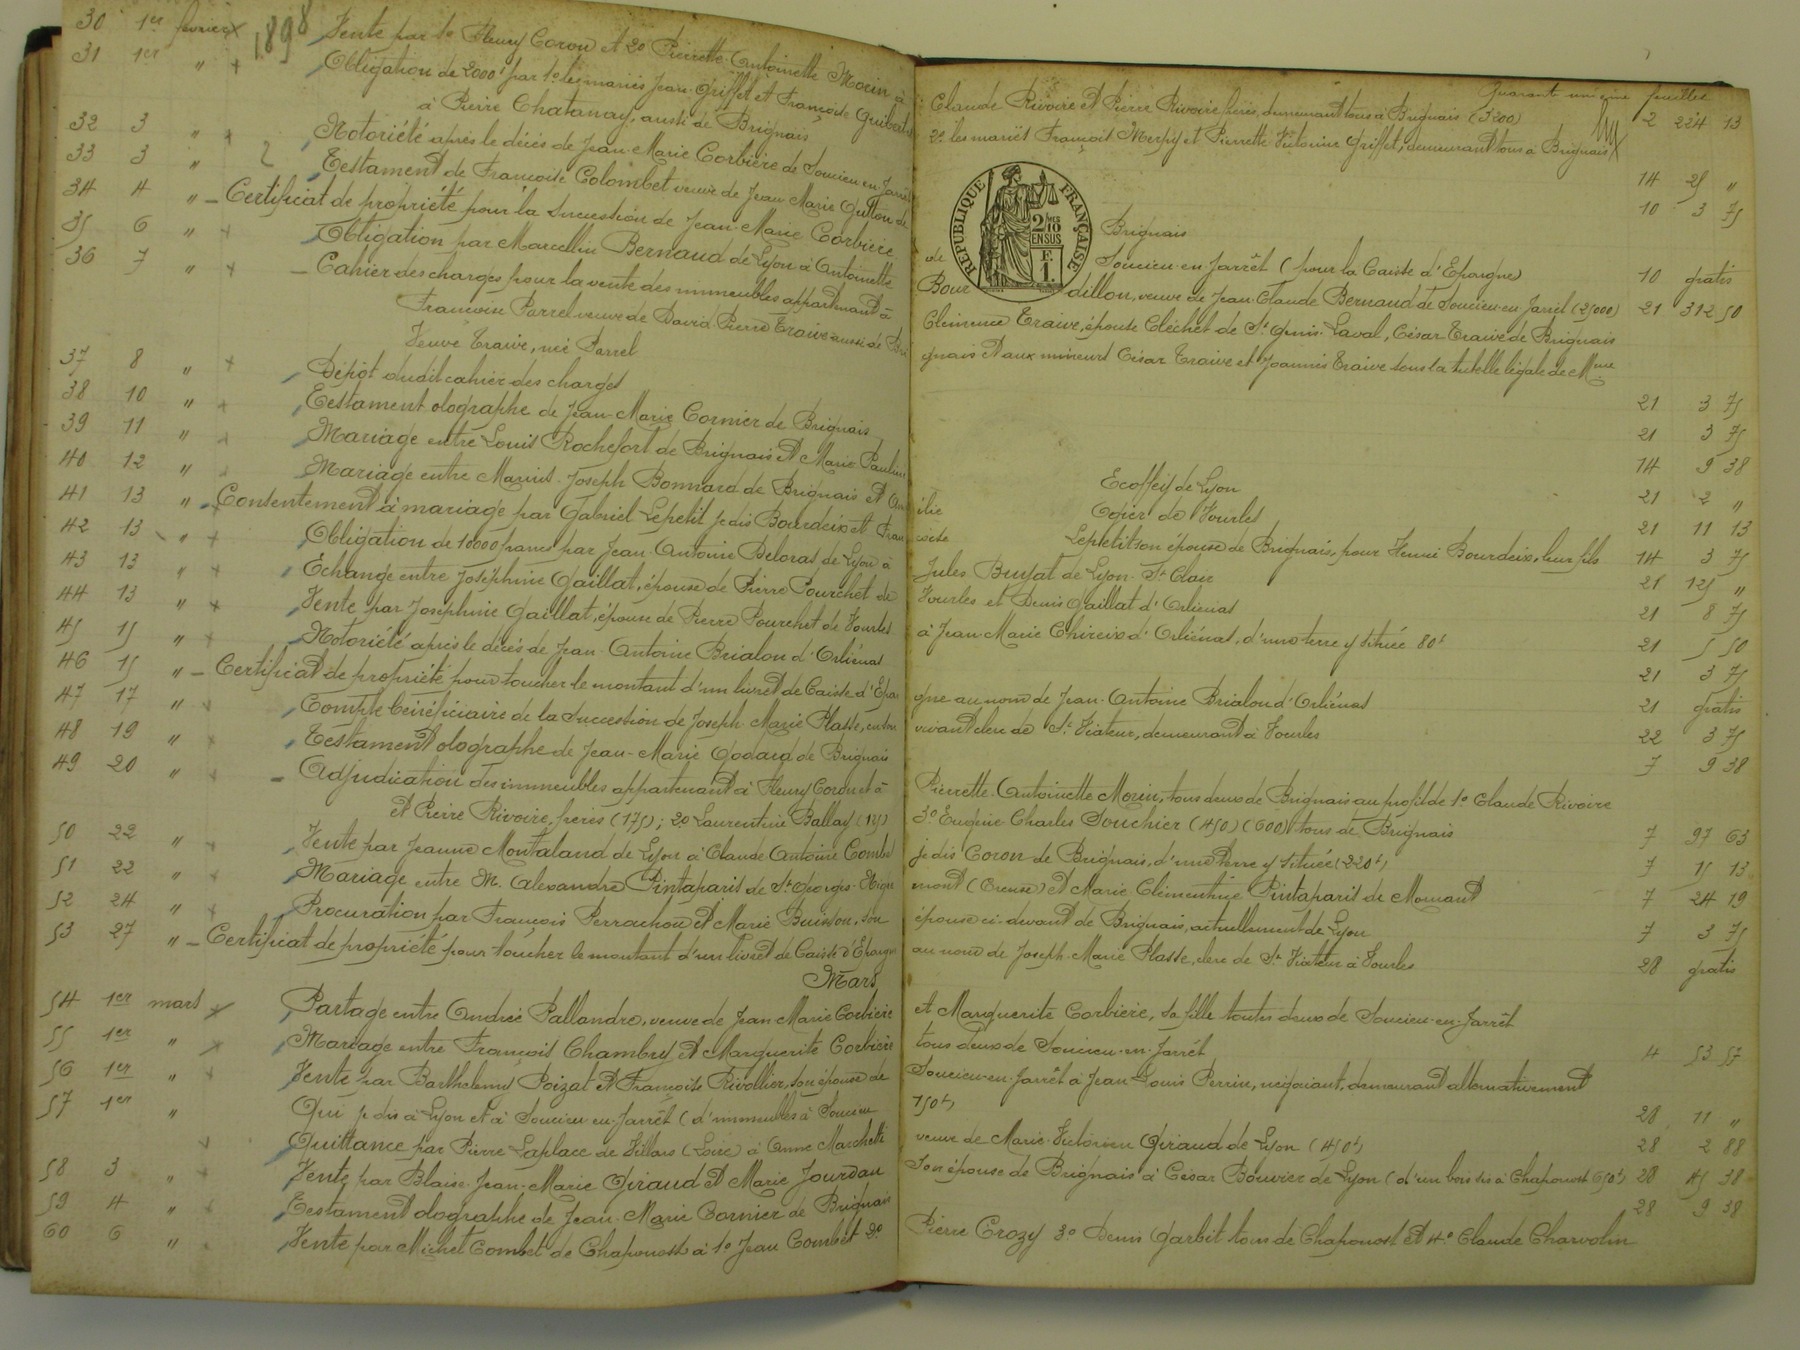 30 1er février 1898 Vente par 1o Fleury Coron et 2o Pierrette-Antoinette Morin à
31 1er " Obligation de 2000f par 1o les mariés Jean Griffet et Françoise Guibert
à Pierre Chatanay, aussi de Brignais
32 3 " Notoriété après le décès de Jean-Marie Corbière de Soucieu-en-Jarrêt
33 3 " Testament de Françoise Colombet veuve de Jean Marie Guttou de
34 4 " Certificat de propriété pour la succession de Jean-Marie Corbière
35 6 " Obligation par Marcellin Bernaud de Lyon à Antoinette
36 7 " Cahier des charges pour la vente des immeubles appartenant à
Françoise Parrel veuve de David Pierre Traive aussi de Bri
Veuve Traive, née Parrel
37 8 " Dépôt dudit cahier des charges
38 10 " Testament olographe de Jean-Marie Cornier de Brignais
39 11 " Mariage entre Louis Rochefort de Brignais et Marie Pauline
40 12 " Mariage entre Marius-Joseph Bonnard de Brignais et
41 13 " Consentement à mariage par Gabriel Lepetit jadis Bourdeix et Fran
42 13 " Obligation de 10000 francs par Jean-Antoine Deloras de Lyon à
43 13 " Echange entre Joséphine Gaillat, épouse de Pierre Pourchet de
44 13 " Vente par Joséphine Gaillat, épouse de Pierre Pourchet de Vourles
45 15 " Notoriété après le décès de Jean-Antoine Brialon d'Orliénas
46 15 " Certificat de propriété pour toucher le montant d'un livret de Caisse d'Epar
47 17 " Compte bénéficiaire de la succession de Joseph-Marie Plasse, en son
48 19 " Testament olographe de Jean-Marie Godard de Brignais
49 20 " Adjudication des immeubles appartenant à Fleury Coron et à
et Pierre Rivoire, frères (175); 2o Laurentine Ballay (125)
50 22 " Vente par Jeanne Montaland de Lyon à Claude Antoine Combet
51 22 " Mariage entre M. Alexandre Pintaparis de St Georges-Nigre
52 24 " Procuration par François Perrachon et Marie Buisson, son
53 27 " Certificat de propriété pour toucher le montant d'un livret de Caisse d'Epargne
Mars
54 1er mars Partage entre Andrée Pallandre, veuve de Jean Marie Corbière
55 1er " Mariage entre François Chambry et Marguerite Corbière
56 1er " Vente par Barthelemy Poizat et Françoise Rivollier, son épouse de
57 1er " Qui jadis à Lyon et à Soucieu-en-Jarrêt (d'immeubles à Soucieu
Quittance par Pierre Laplace de Villars (Loire) à Anne Marchetti
58 3 " Vente par Blaise-Jean-Marie Giraud et Marie Jourdan
59 4 " Testament olographe de Jean-Marie Cornier de Brignais
60 6 " Vente par Michel Combet de Chaponost à 1o Jean Combet 2o
Quarante unième feuillet
Claude Rivoire et Pierre Rivoire frères, demeurant tous à Brignais (3200) 2 224 13
2o les mariés François Merpiy et Pierrette Victorine Griffet, demeurant tous à Brignais
14 25 "
10 3 75
RÉPUBLIQUE FRANÇAISE
2/10 EN SUS
F. 1.
Brignais
de Soucieu-en-Jarrêt (pour la Caisse d'Epargne) 10 gratis
Bour dillon, veuve de Jean-Claude Bernaud de Soucieu-en-Jarrêt (25000) 21 312 50
Clémence Traive, épouse Cléchet de St Genis-Laval, César Traive de Brignais
gnais et aux mineurs César Traive et Joannès Traive sous la tutelle légale de Mme
21 3 75
21 3 75
14 9 38
Ecoffey de Lyon 21 2 "
ilie Ogier de Vourles 21 11 13
çoise Lepetit son épouse de Brignais, pour Henri Bourdeix, leur fils 14 3 75
Jules Brusat de Lyon-St Clair 21 125 "
Vourles et Denis Gaillat d'Orliénas 21 8 75
à Jean-Marie Chireix d'Orliénas, d'une terre y située 80f 21 5 50
21 3 75
gne au nom de Jean-Antoine Brialon d'Orliénas 21 gratis
vivant clerc de St Viateur, demeurant à Vourles 22 3 75
7 9 38
Pierrette-Antoinette Morin, tous deux de Brignais au profit de 1o Claude Rivoire
3o Eugène Charles Souchier (450) (600) tous de Brignais 7 97 63
jadis Coron de Brignais, d'une terre y située (220f) 7 15 13
mont (Creuse) et Marie Clémentine Pintaparis de Mornant 7 24 19
épouse ci-devant de Brignais, actuellement de Lyon 7 3 75
au nom de Joseph-Marie Plasse, clerc de St Viateur à Vourles 28 gratis
et Marguerite Corbière, sa fille toutes deux de Soucieu-en-Jarrêt
tous deux de Soucieu-en-Jarrêt 4 53 57
Soucieu-en-Jarrêt à Jean-Louis Perrin, négociant, demeurant alternativement
150f) 28 11 "
veuve de Marie-Victorien Giraud de Lyon (450f) 28 2 88
son épouse de Brignais à César Bouvier de Lyon (d'un bois sis à Chaponost 650f) 28 45 38
28 9 38
Pierre Crozy 3o Denis Garbit tous de Chaponost et 4o Claude Charvolin